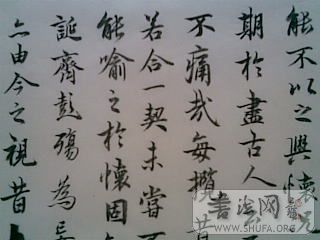 能不以之興懷
期於盡古人
不痛哉每攬昔
若合一契未嘗不
能喻之於懷固
誕齊彭殤為妄
亦由今之視昔
WWW.SHUFA.ORG